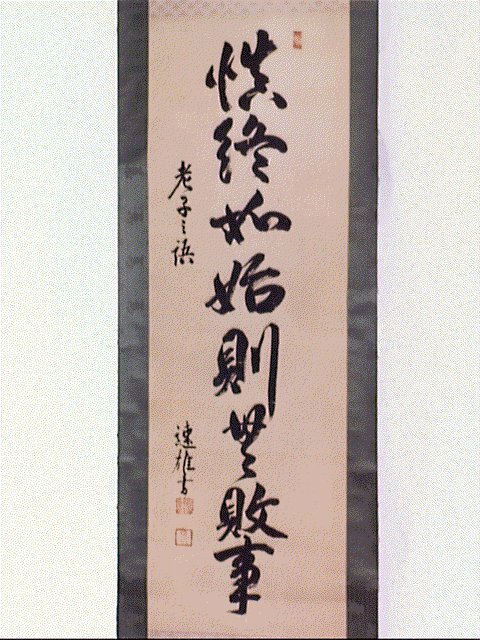 慎終如始則無敗事
老子之語
速雄書